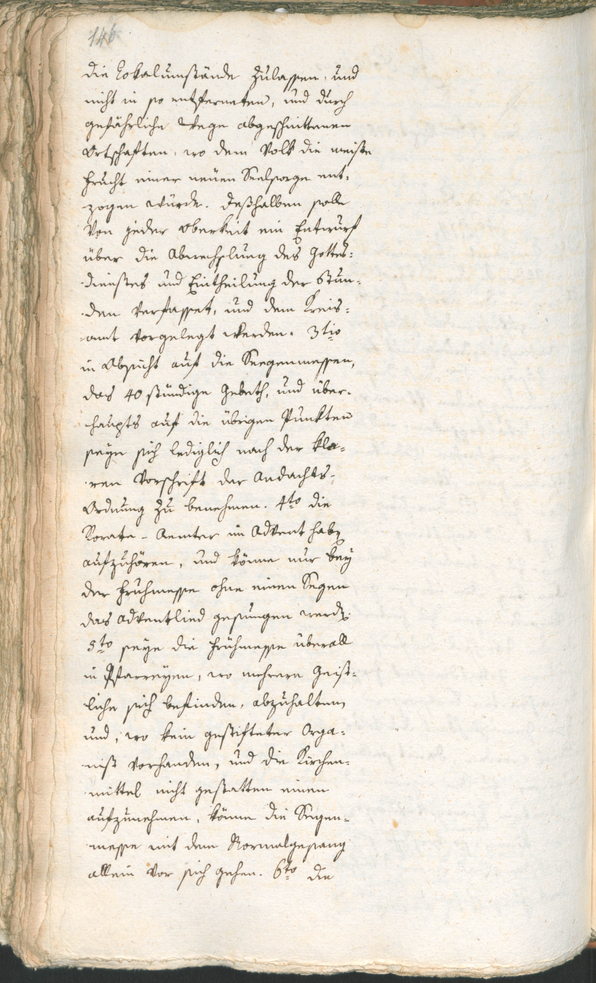 146.
die Lokalumstände zulassen, und
nicht in so entfernten, und durch
gefährliche Wege abgeschnittenen
Ortschaften, wo dem Volk die meiste
Frucht einer neuen Seelsorge ent:
zogen würde. Deßhalben solle
von jeder Oberkeit ein Entwurf
über die Abwechslung des Gottes:
dienstes und Eintheilung der Stun:
den verfasset, und dem Kreis:
amt vorgelegt werden. 3tio
in Absicht auf die Seegenmessen,
das 40 stündige Gebeth, und über:
haupts auf die übrigen Punkten
seye sich lediglich nach der kla:
ren Vorschrift der Andachts:
Ordnung zu benehmen. 4to die
Rorate-Aemter im Advent habn
aufzuhören, und könne nur bey
der Frühmesse ohne einen Segen
das Adventlied gesungen werdn.
5to seye die Frühmesse überall
in Pfarreyen, wo mehrere Geist:
liche sich befinden, abzuhalten,
und, wo kein gestifteter Orga:
nist vorhanden, und die Kirchen:
mittel nicht gestatten einen
aufzunehmen, könne die Segen:
messe mit dem Normalgesang
allein vor sich gehen. 6to die